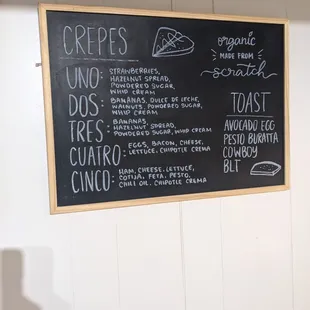 CREPES
UNO: STRAWBERRIES,
HAZELNUT SPREAD,
POWDERED SUGAR,
WHIP CREAM
DOS: BANANAS, DULCE DE LECHE,
WALNUTS, POWDERED SUGAR,
WHIP CREAM
TRES: BANANAS,
HAZELNUT SPREAD,
POWDERED SUGAR, WHIP CREAM
CUATRO: EGGS, BACON, CHEESE,
LETTUCE, CHIPOTLE CREMA
CINCO: HAM, CHEESE, LETTUCE,
COTIJA, FETA, PESTO,
CHILI OIL, CHIPOTLE CREMA
organic
MADE FROM
scratch
TOAST
AVOCADO EGG
PESTO BURATTA
COWBOY
BLT